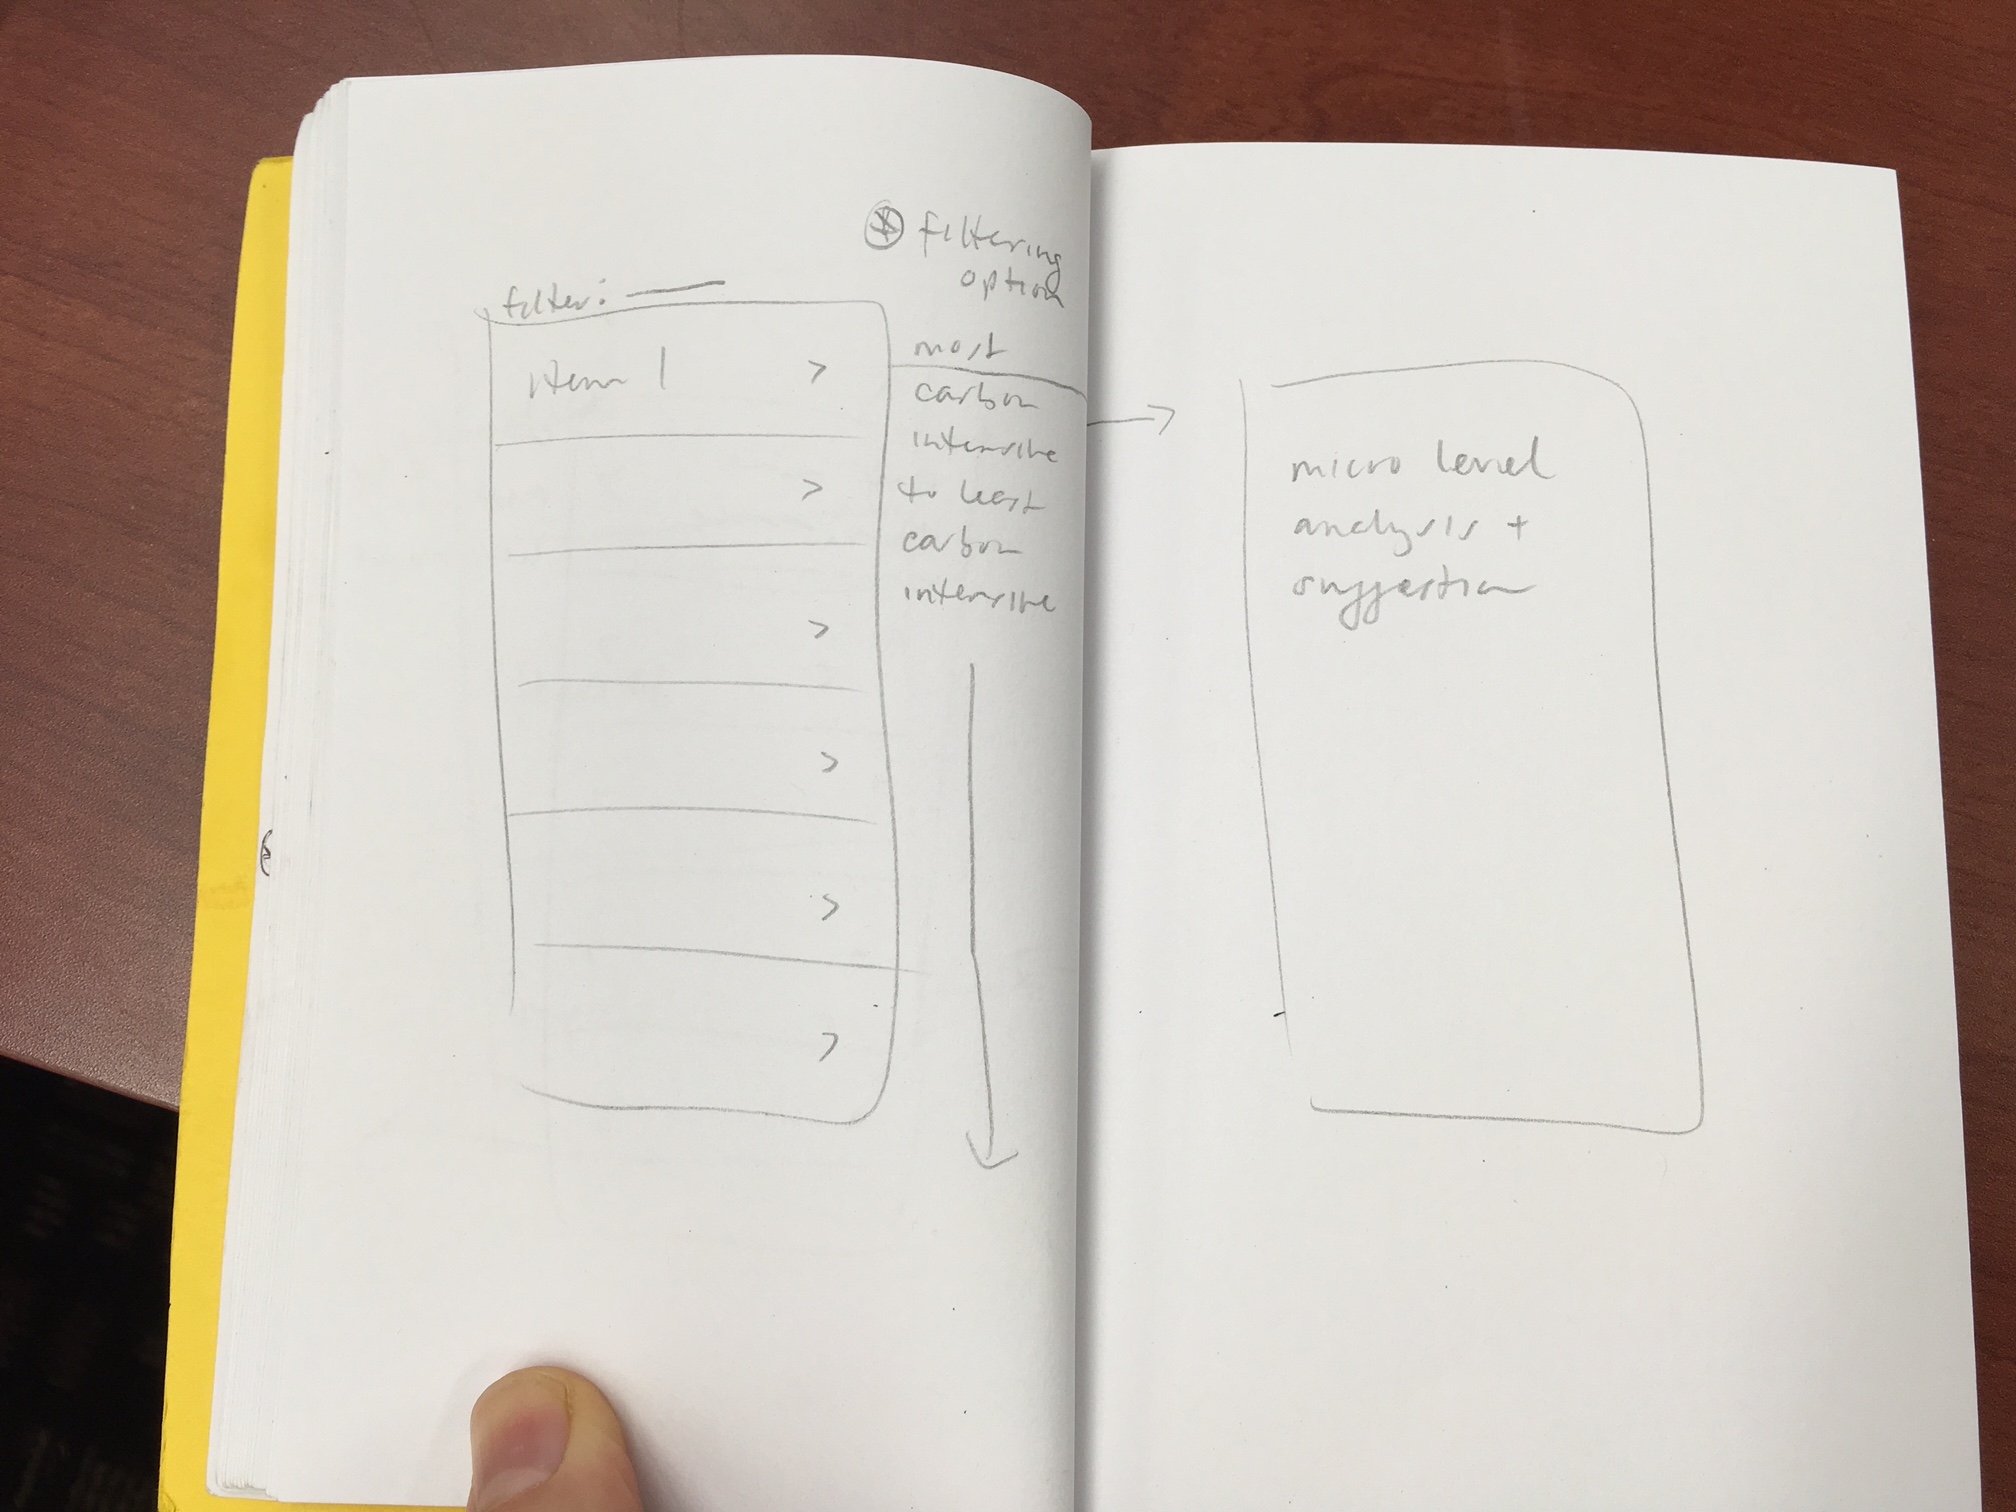 filtering
option
filter:
item 1 >
most
carbon
intensive
to least
carbon
intensive
>
>
>
>
>
micro level
analysis +
suggestion